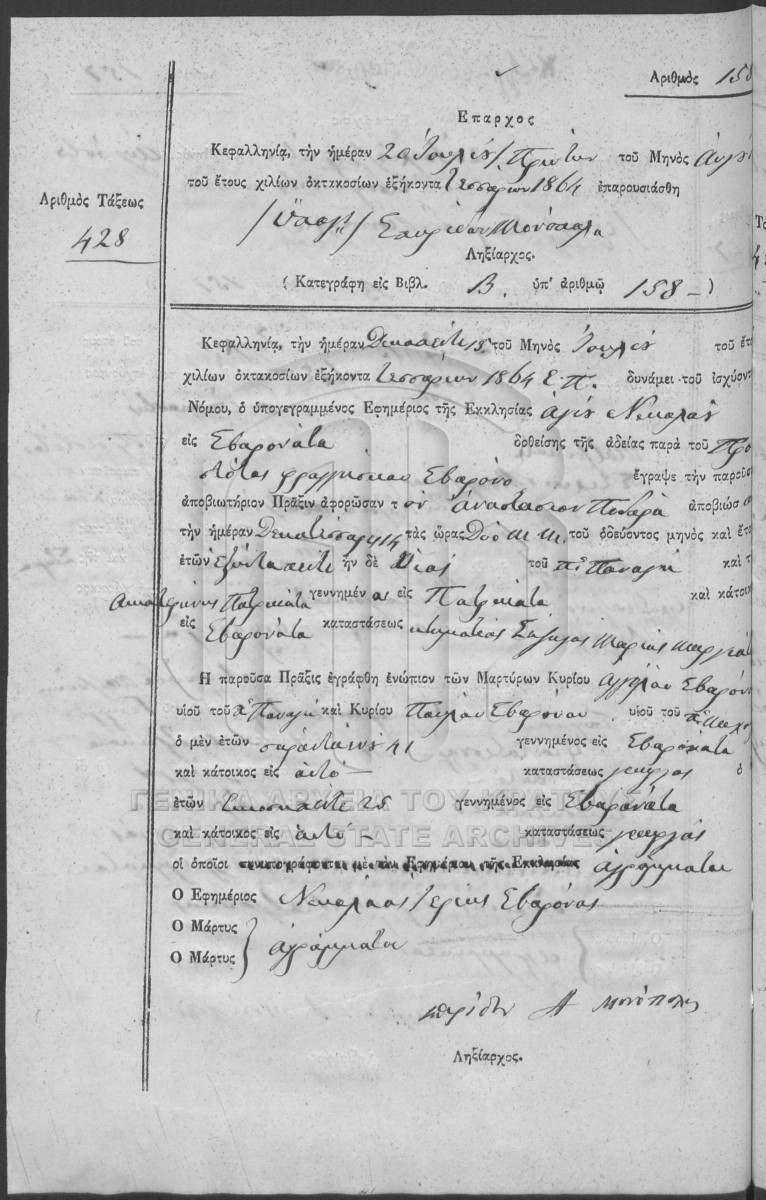 Αριθμὸς 158
Επαρχος
Κεφαλληνίᾳ, τὴν ἡμέραν 20 Ἰουλίου / Πρώτην τοῦ Μηνὸς Αὐγού
τοῦ ἔτους χιλίων ὀκτακοσίων ἑξήκοντα τεσσάρων 1864 ἐπαρουσιάσθη
Σπυρίδων
Ληξίαρχος.
Αριθμὸς Τάξεως
428
( Κατεγράφη εἰς Βιβλ. Β. ὑπ' ἀριθμῷ 158 - )
Κεφαλληνίᾳ, τὴν ἡμέραν Δεκαπέντε 15 τοῦ Μηνὸς Ἰουλίου τοῦ ἔτο
χιλίων ὀκτακοσίων ἑξήκοντα τεσσάρων 1864 Ε. Π. δυνάμει τοῦ ἰσχύοντ
Νόμου, ὁ ὑπογεγραμμένος Ἐφημέριος τῆς Ἐκκλησίας ἁγίου Νικολάου
εἰς Σβορωνάτα δοθείσης τῆς ἀδείας παρὰ τοῦ Προ
Σβορόνο ἔγραψε τὴν παροῦσ
ἀποβιωτήριον Πρᾶξιν ἀφορῶσαν τ ὸν ἀναστάσιον ἀποβιώσ
τὴν ἡμέραν Δεκατέσσαρη 14 τὰς ὥρας Δύο Μ. Μ. τοῦ ὁδεύοντος μηνὸς καὶ ἔτο
ἐτῶν ἑξήντα πέντε ἦν δὲ υἱὸς τοῦ πτ Παναγῆ καὶ τ
Αικατερίνης Πατρικάτα γεννημέν ος εἰς Πατρικάτα καὶ κάτοικ
εἰς Σβορωνάτα καταστάσεως κτηματίας Σύζυγος Μαρίας
Η παροῦσα Πρᾶξις ἐγράφθη ἐνώπιον τῶν Μαρτύρων Κυρίου Ἀγγέλου Σβορόν
υἱοῦ τοῦ π Παναγῆ καὶ Κυρίου Παύλου Σβορόνου υἱοῦ τοῦ π
ὁ μὲν ἐτῶν σαράντα ἑνὸς 41 γεννημένος εἰς Σβορωνάτα
καὶ κάτοικος εἰς αὐτό - καταστάσεως γεωργὸς ὁ
ἐτῶν εικοσιπέντε 25 γεννημένος εἰς Σβορωνάτα
καὶ κάτοικος εἰς αὐτό - καταστάσεως γεωργός
οἱ ὁποῖοι συνυπογράφονται μὲ τὸν Ἐφημέριον τῆς Ἐκκλησίας ἀγράμματοι
Ο Ἐφημέριος Νικόλαος Ἱερεὺς Σβορόνος
Ο Μάρτυς
Ο Μάρτυς } ἀγράμματοι
Ληξίαρχος.
ΓΕΝΙΚΑ ΑΡΧΕΙΑ ΤΟΥ ΚΡΑΤΟΥΣ
GENERAL STATE ARCHIVES